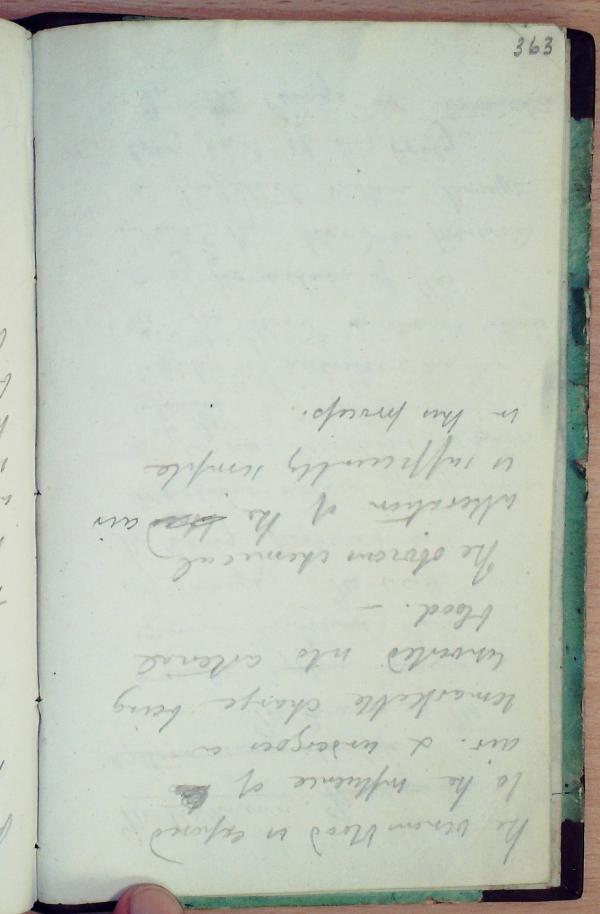 363
The venous blood is exposed
to the influence of
air. & undergoes a
remarkable change being
converted into arterial
blood. –
The obvious chemical
alteration of the air
is sufficiently simple
in this process.